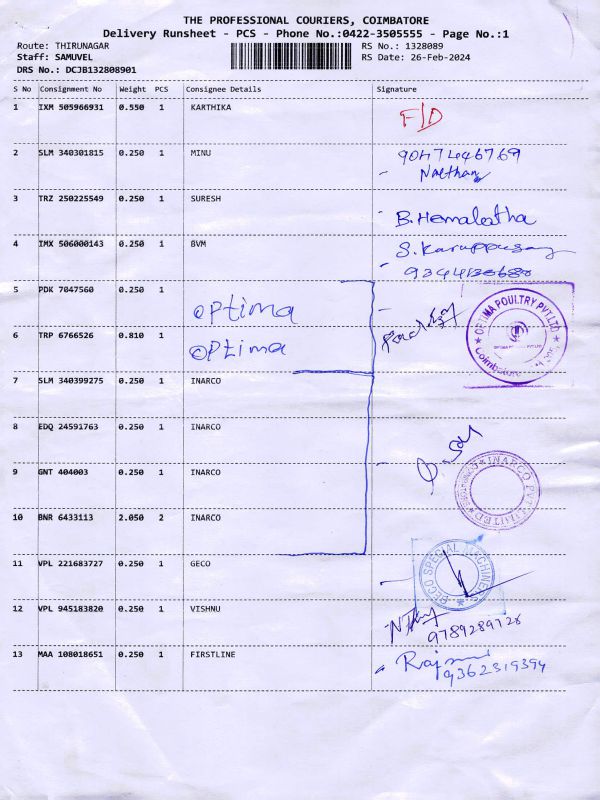 THE PROFESSIONAL COURIERS, COIMBATORE
Delivery Runsheet - PCS - Phone No.:0422-3505555 - Page No.:1
Route: THIRUNAGAR RS No.: 1328089
Staff: SAMUVEL RS Date: 26-Feb-2024
DRS No.: DCJB132808901
S No Consignment No Weight PCS Consignee Details Signature
1 IXM 505966931 0.550 1 KARTHIKA F/D
2 SLM 340301815 0.250 1 MINU 9047446769
3 TRZ 250225549 0.250 1 SURESH B. Hemalatha
4 IMX 506000143 0.250 1 BVM S. Karuppusamy
5 PDK 7047560 0.250 1 OPtima
OPTIMA POULTRY PVT LTD
Coimbatore
6 TRP 6766526 0.810 1 OPtima
7 SLM 340399275 0.250 1 INARCO
8 EDQ 24591763 0.250 1 INARCO
9 GNT 404003 0.250 1 INARCO
INARCO PVT LIMITED
10 BNR 6433113 2.050 2 INARCO
11 VPL 221683727 0.250 1 GECO
GECO SPECIAL MACHINERIES
12 VPL 945183820 0.250 1 VISHNU
9789289728
13 MAA 108018651 0.250 1 FIRSTLINE
9362319394